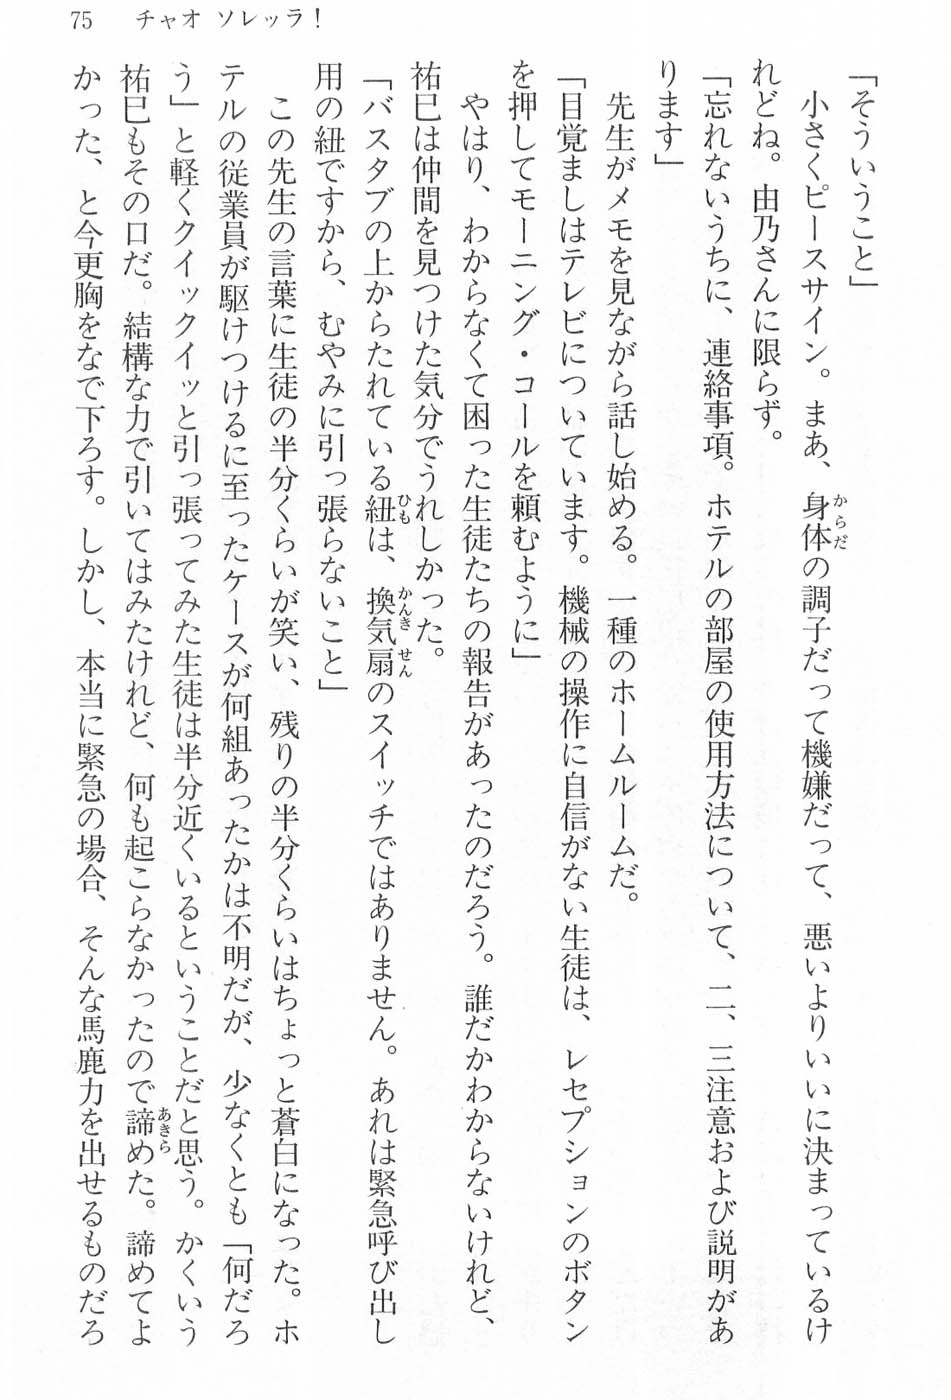 75　チャオ ソレッラ！
「そういうこと」
　小さくピースサイン。まあ、身体の調子だって機嫌だって、悪いよりいいに決まっているけ
れどね。由乃さんに限らず。
「忘れないうちに、連絡事項。ホテルの部屋の使用方法について、二、三注意および説明があ
ります」
　先生がメモを見ながら話し始める。一種のホームルームだ。
「目覚ましはテレビについています。機械の操作に自信がない生徒は、レセプションのボタン
を押してモーニング・コールを頼むように」
　やはり、わからなくて困った生徒たちの報告があったのだろう。誰だかわからないけれど、
祐巳は仲間を見つけた気分でうれしかった。
「バスタブの上からたれている紐は、換気扇のスイッチではありません。あれは緊急呼び出し
用の紐ですから、むやみに引っ張らないこと」
　この先生の言葉に生徒の半分くらいが笑い、残りの半分くらいはちょっと蒼白になった。ホ
テルの従業員が駆けつけるに至ったケースが何組あったかは不明だが、少なくとも「何だろ
う」と軽くクイックイッと引っ張ってみた生徒は半分近くいるということだと思う。かくいう
祐巳もその口だ。結構な力で引いてはみたけれど、何も起こらなかったので諦めた。諦めてよ
かった、と今更胸をなで下ろす。しかし、本当に緊急の場合、そんな馬鹿力を出せるものだろ